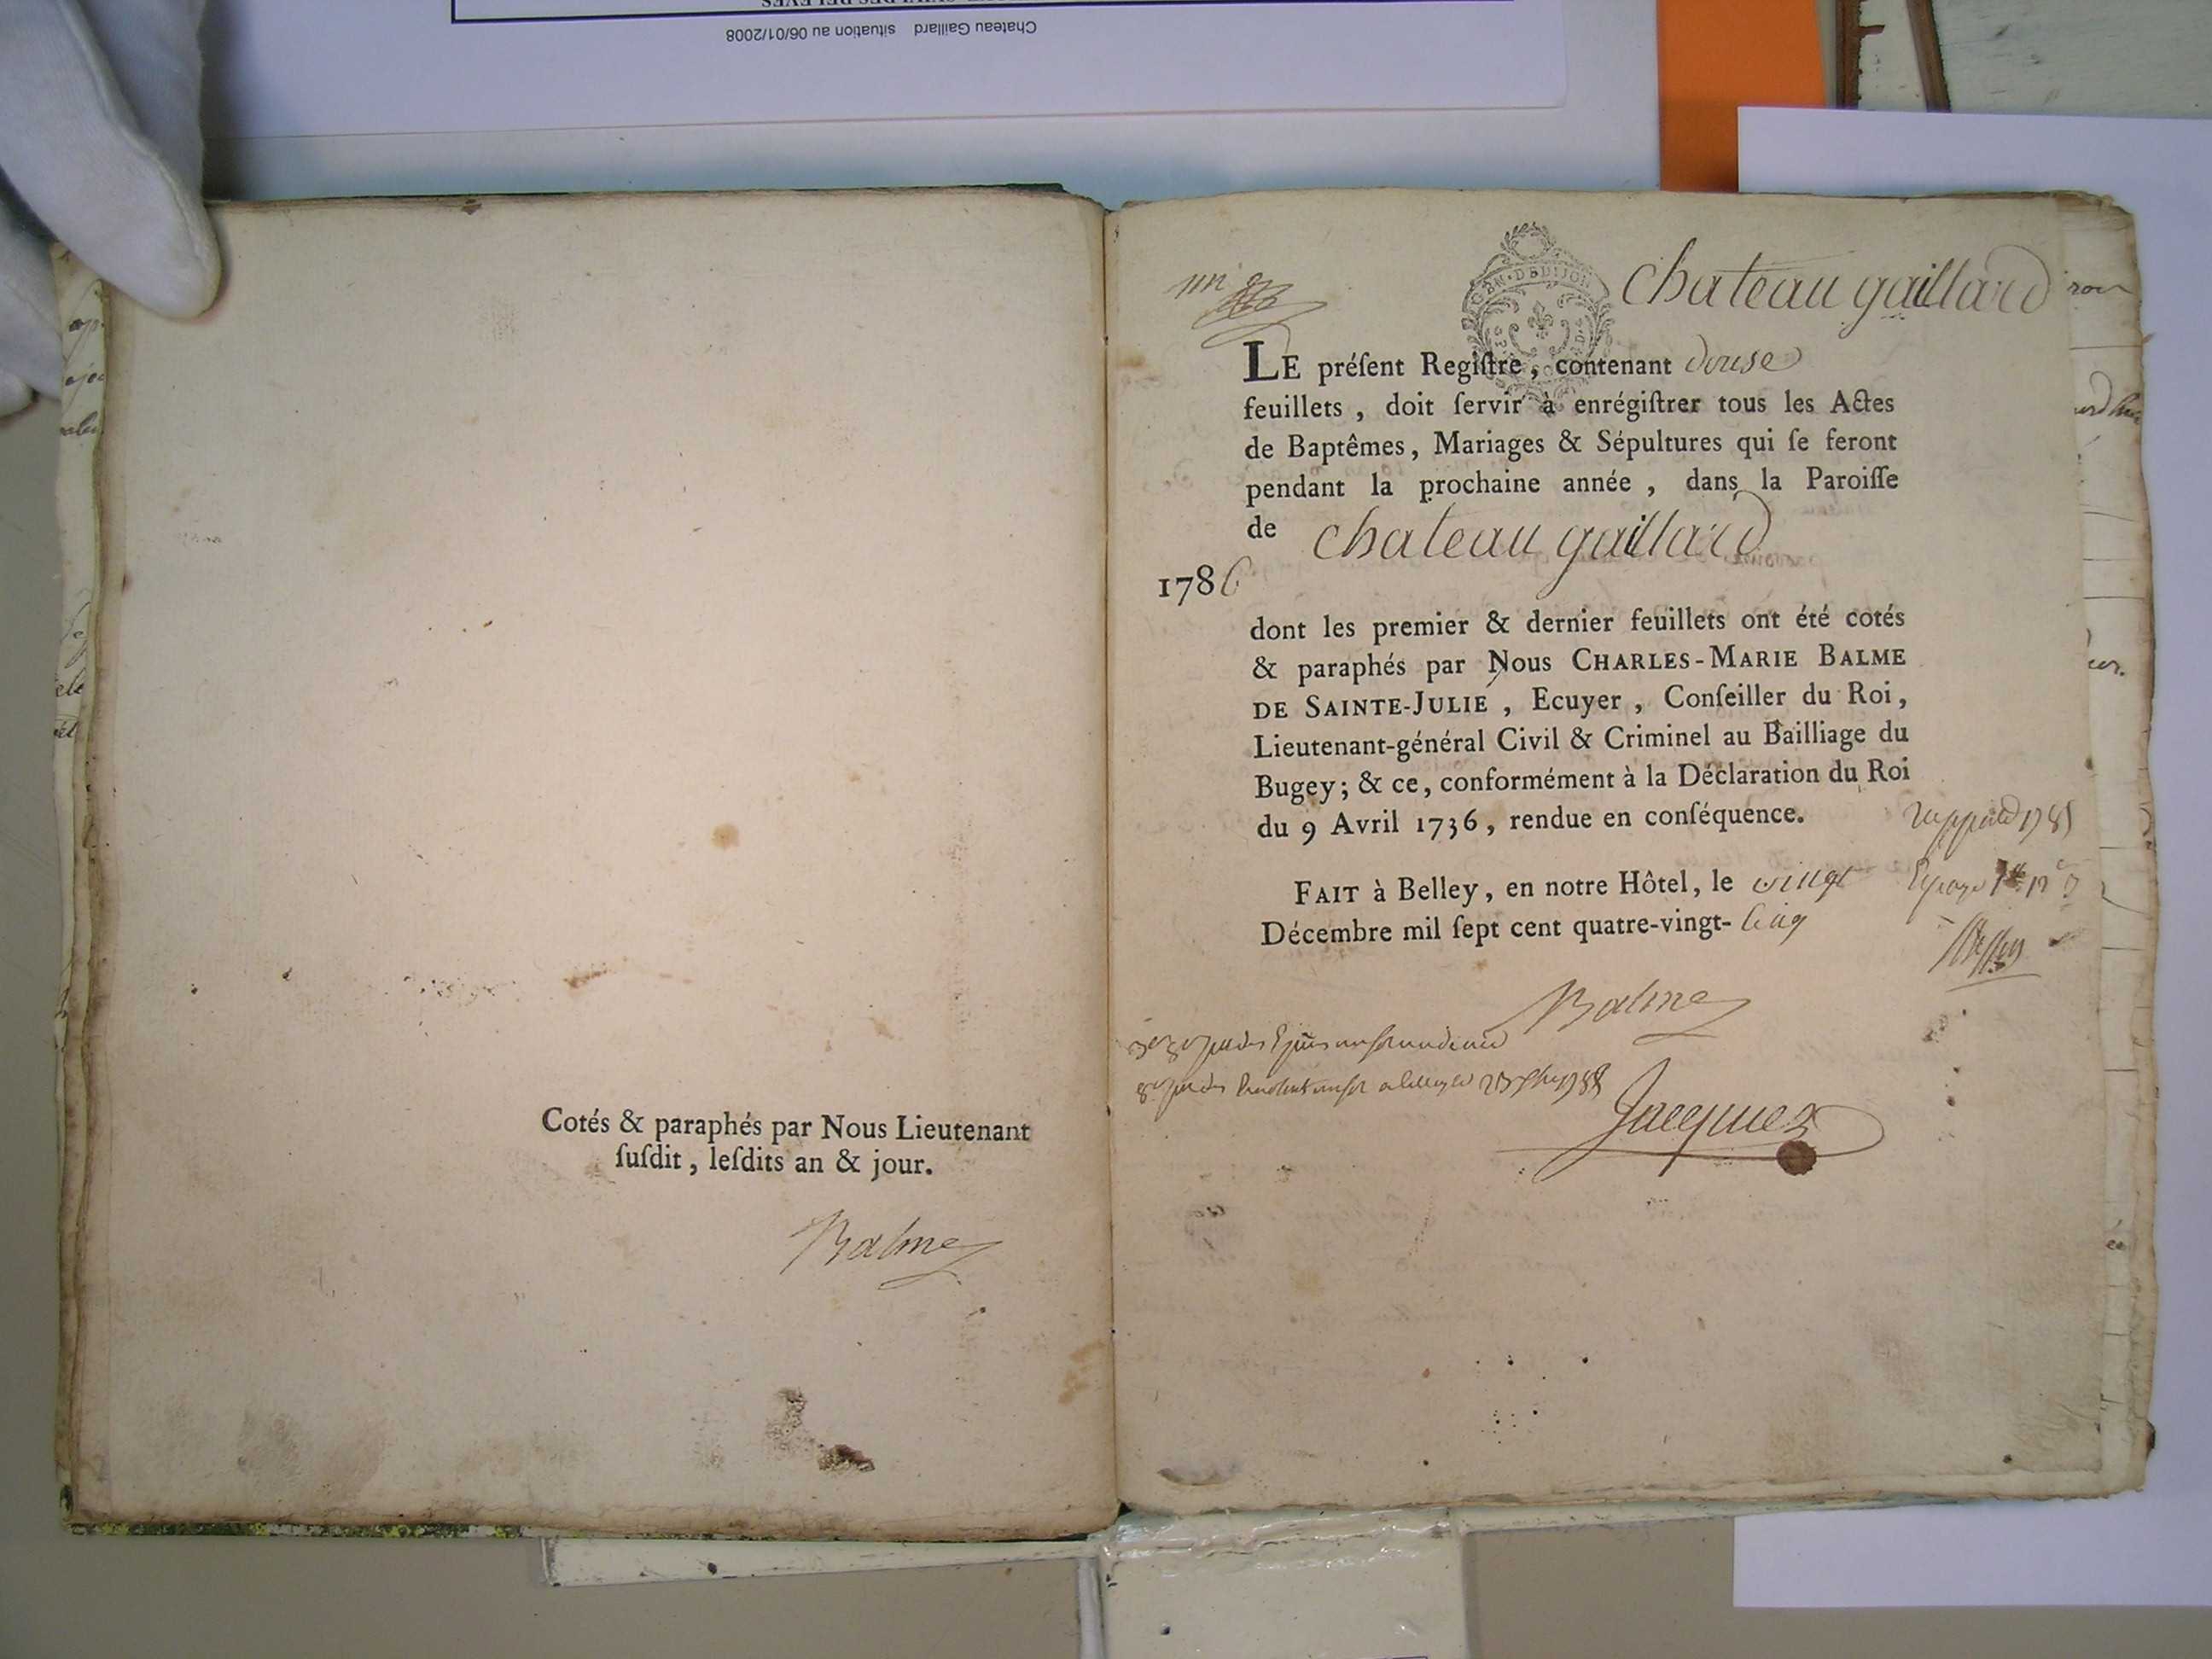 Chateau Gaillard situation au 06/01/2008
Cotés & paraphés par Nous Lieutenant
ſuſdit, leſdits an & jour.
Balme
chateau gaillard
GEN. DE DIJON
LE préſent Regiſtre, contenant douse
feuillets, doit ſervir à enrégiſtrer tous les Actes
de Baptêmes, Mariages & Sépultures qui ſe feront
pendant la prochaine année, dans la Paroiſſe
de chateau gaillard
1786
dont les premier & dernier feuillets ont été cotés
& paraphés par Nous CHARLES-MARIE BALME
DE SAINTE-JULIE, Ecuyer, Conſeiller du Roi,
Lieutenant-général Civil & Criminel au Bailliage du
Bugey; & ce, conformément à la Déclaration du Roi
du 9 Avril 1736, rendue en conſéquence.
FAIT à Belley, en notre Hôtel, le vingt
Décembre mil ſept cent quatre-vingt-cinq
Balme
Jacques